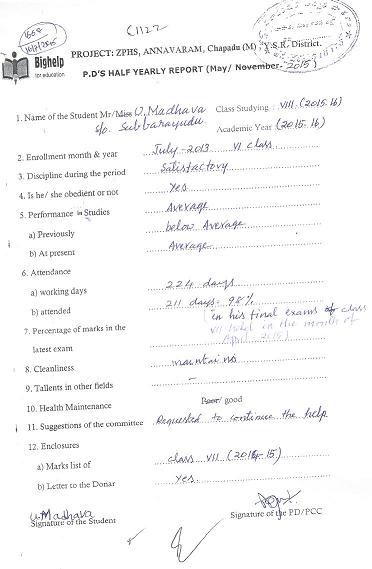 C1122
1668
Bighelp
for education
PROJECT: ZPHS, ANNAVARAM, Chapadu (M) Y.S.R. District.
P.D'S HALF YEARLY REPORT (May/ November- 2015)
1. Name of the Student Mr/Miss U. Madhava Class Studying VIII (2015.16)
S/o. Subbarayudu. Academic Year (2015.16)
2. Enrollment month & year July-2013 VI class
3. Discipline during the period Satisfactory
4. Is he/ she obedient or not Yes
5. Performance in Studies Average
a) Previously below Average
b) At present Average
6. Attendance
a) working days 224 days
b) attended 211 days. 98%
7. Percentage of marks in the (in his final exams of class
VII held in the month of
latest exam April 2015)
8. Cleanliness maintains
9. Tallents in other fields –
10. Health Maintenance Poor/ good
11. Suggestions of the committee Requested to continue the help
12. Enclosures
a) Marks list of class VII (2014-15)
b) Letter to the Donar Yes.
U. Madhava
Signature of the Student Signature of the PD/PCC